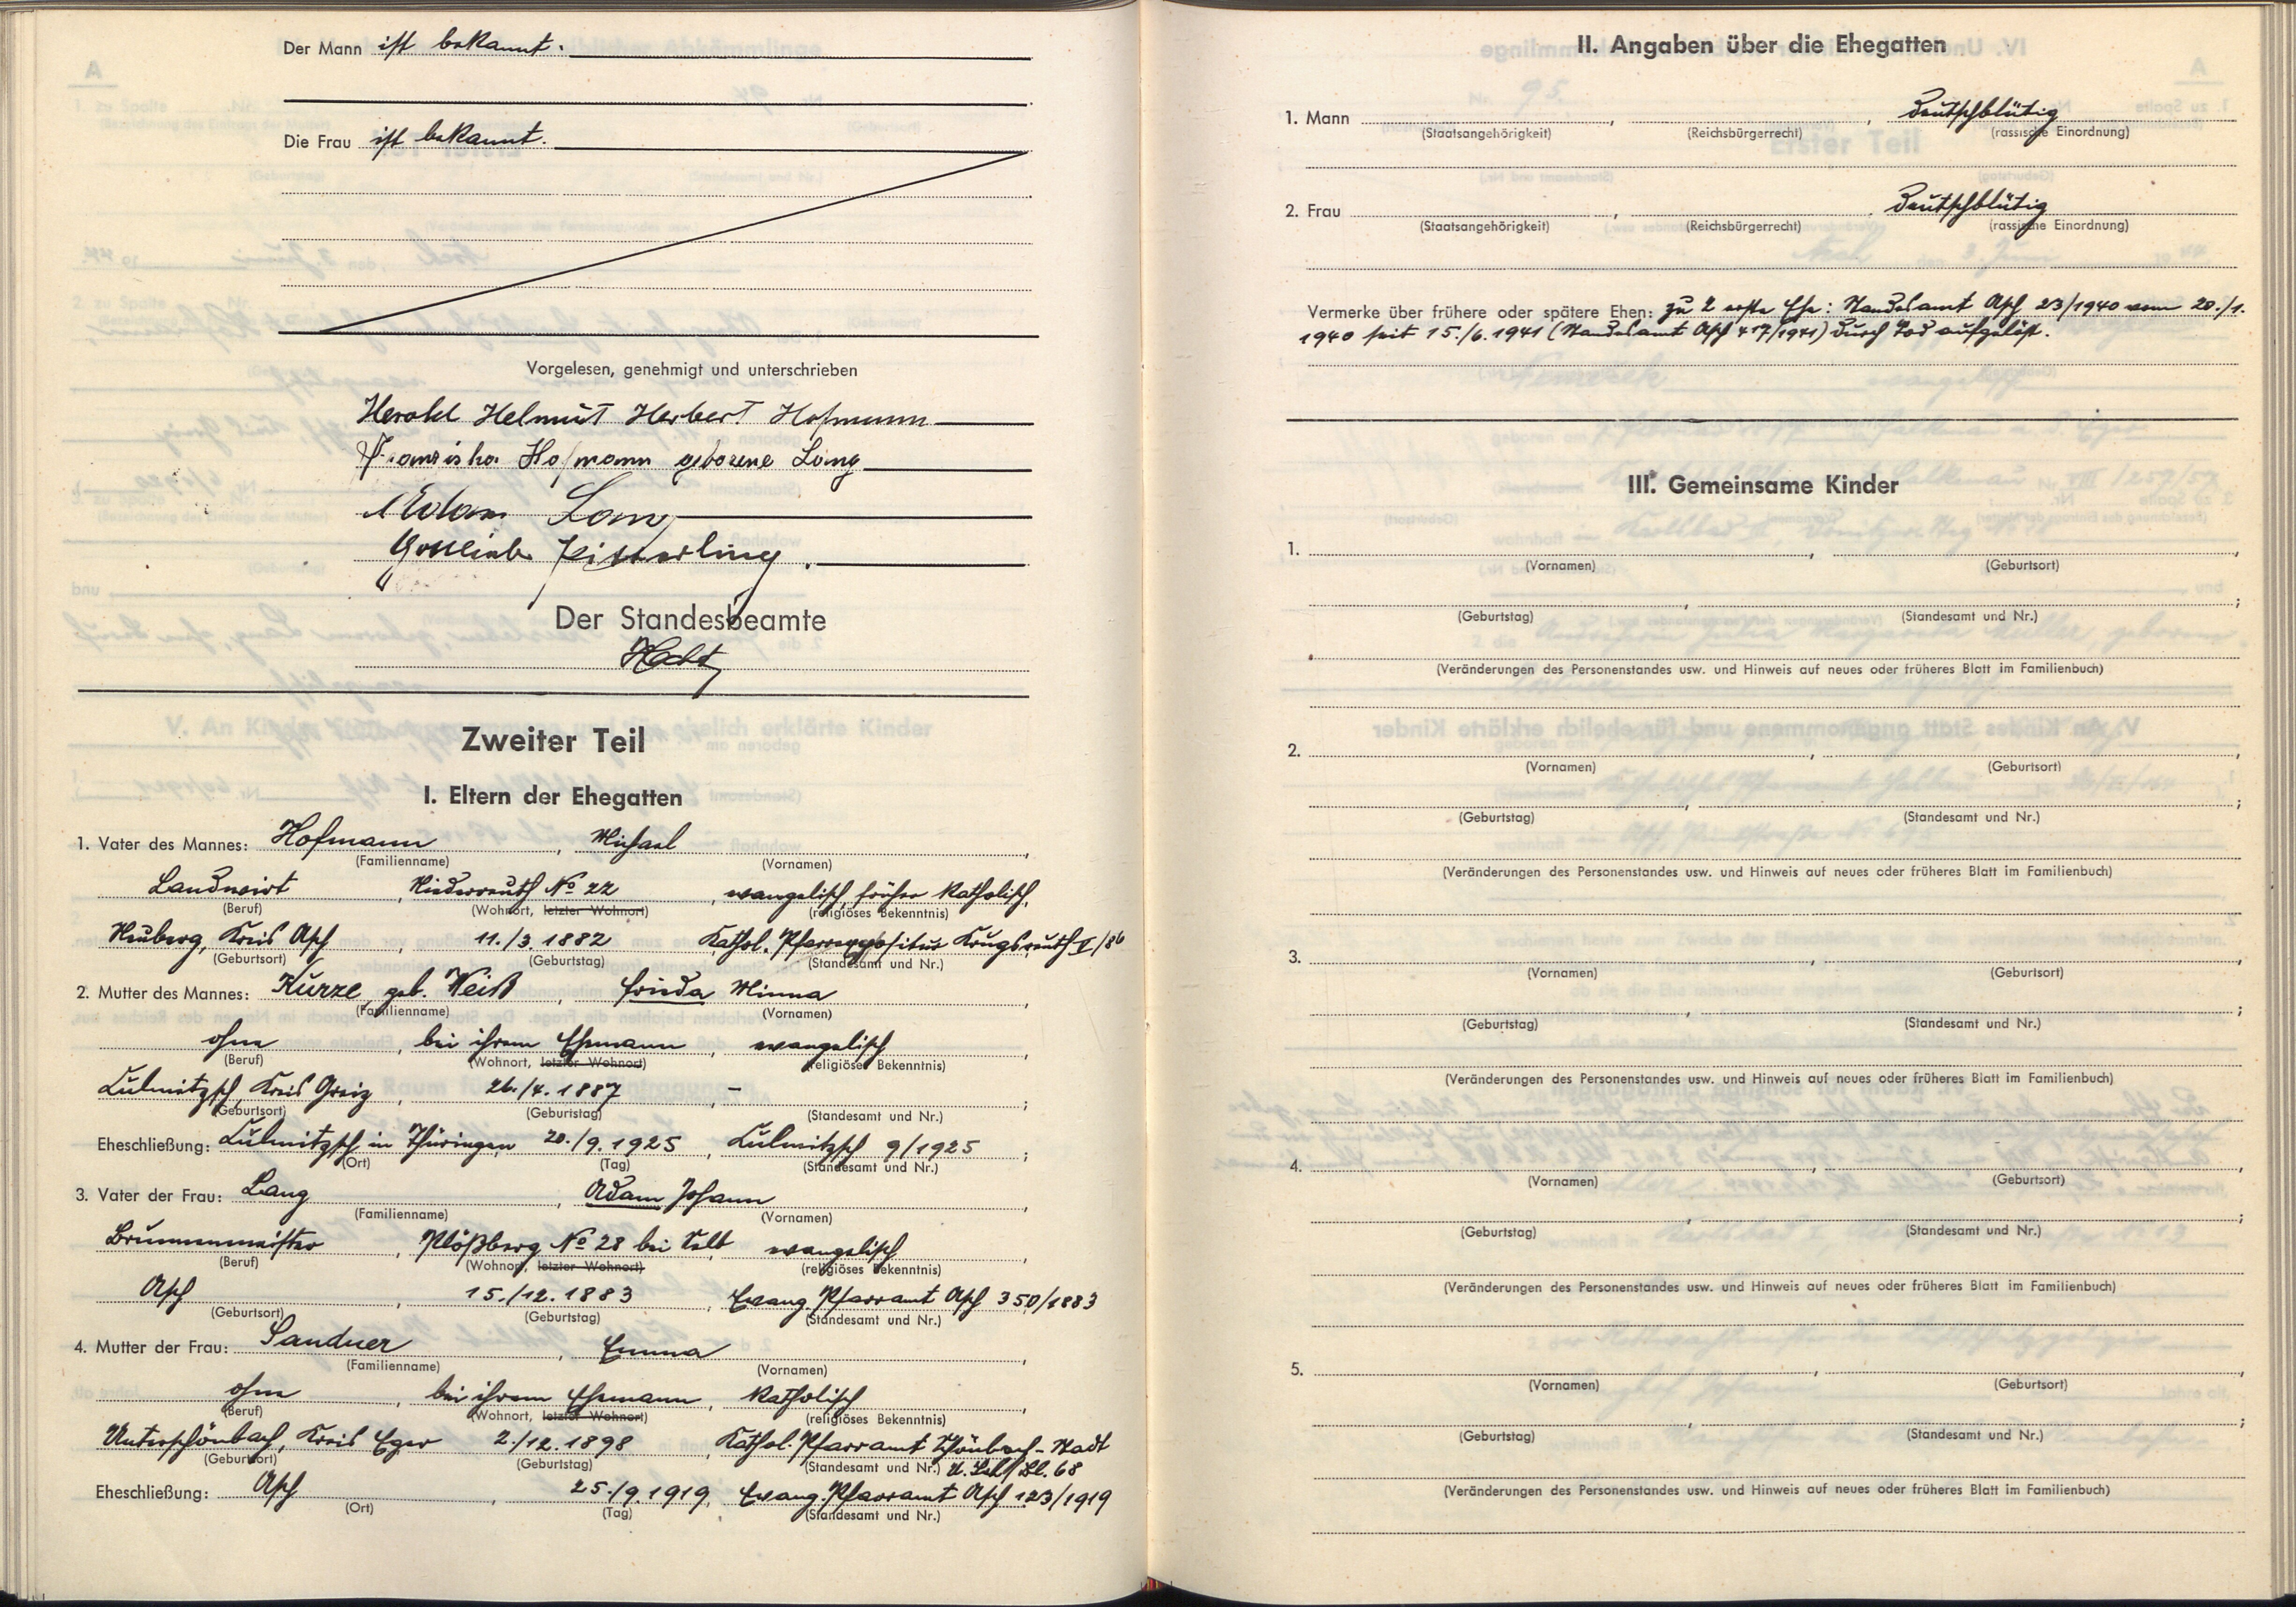 Der Mann ist bekannt.
Die Frau ist bekannt.
Vorgelesen, genehmigt und unterschrieben
Herold Helmut Herbert Hofmann
Franziska Hofmann geborene Lang
Adam Lang
Gottlieb
Der Standesbeamte
Zweiter Teil
I. Eltern der Ehegatten
1. Vater des Mannes: Hofmann, Michael
(Familienname) (Vornamen)
Landwirt, Niederreuth No 22, evangelisch, früher katholisch,
(Beruf) (Wohnort, letzter Wohnort) (religiöses Bekenntnis)
Neuberg, Kreis Asch, 11./3. 1882 Kathol. Pfarrexpositur Krugsreuth I/86
(Geburtsort) (Geburtstag) (Standesamt und Nr.)
2. Mutter des Mannes: Kurze, geb. Weiß, Frieda Minna,
(Familienname) (Vornamen)
ohne, bei ihrem Ehemann, evangelisch,
(Beruf) (Wohnort, letzter Wohnort) (religiöses Bekenntnis)
Culmitzsch, Kreis Greiz, 26./4. 1887, – ;
(Geburtsort) (Geburtstag) (Standesamt und Nr.)
Eheschließung: Culmitzsch in Thüringen 20./9. 1925, Culmitzsch 9/1925 ;
(Ort) (Tag) (Standesamt und Nr.)
3. Vater der Frau: Lang, Adam Johann,
(Familienname) (Vornamen)
Brunnenmeister, Plößberg No 28 bei Selb evangelisch,
(Beruf) (Wohnort, letzter Wohnort) (religiöses Bekenntnis)
Asch, 15./12. 1883, Evang. Pfarramt Asch 350/1883
(Geburtsort) (Geburtstag) (Standesamt und Nr.)
4. Mutter der Frau: Sandner, Emma,
(Familienname) (Vornamen)
ohne, bei ihrem Ehemann, katholisch,
(Beruf) (Wohnort, letzter Wohnort) (religiöses Bekenntnis)
Unterschönbach, Kreis Eger 2./12. 1898 Kathol. Pfarramt Schönbach-Stadt
(Geburtsort) (Geburtstag) (Standesamt und Nr.) Bl. 68
Eheschließung: Asch, 25./9. 1919, Evang. Pfarramt Asch 123/1919
(Ort) (Tag) (Standesamt und Nr.)
II. Angaben über die Ehegatten
1. Mann , , Deutschblütig
(Staatsangehörigkeit) (Reichsbürgerrecht) (rassische Einordnung)
2. Frau , . Deutschblütig
(Staatsangehörigkeit) (Reichsbürgerrecht) (rassische Einordnung)
Vermerke über frühere oder spätere Ehen: zu 2 erste Ehe: Standesamt Asch 23/1940 vom 20./1.
1940 seit 15./6. 1941 (Standesamt Asch 417/1941) durch Tod aufgelöst.
III. Gemeinsame Kinder
1. , ,
(Vornamen) (Geburtsort)
, ;
(Geburtstag) (Standesamt und Nr.)
(Veränderungen des Personenstandes usw. und Hinweis auf neues oder früheres Blatt im Familienbuch)
2. , ,
(Vornamen) (Geburtsort)
, ;
(Geburtstag) (Standesamt und Nr.)
(Veränderungen des Personenstandes usw. und Hinweis auf neues oder früheres Blatt im Familienbuch)
3. , ,
(Vornamen) (Geburtsort)
, ;
(Geburtstag) (Standesamt und Nr.)
(Veränderungen des Personenstandes usw. und Hinweis auf neues oder früheres Blatt im Familienbuch)
4. , ,
(Vornamen) (Geburtsort)
, ;
(Geburtstag) (Standesamt und Nr.)
(Veränderungen des Personenstandes usw. und Hinweis auf neues oder früheres Blatt im Familienbuch)
5. , ,
(Vornamen) (Geburtsort)
, ;
(Geburtstag) (Standesamt und Nr.)
(Veränderungen des Personenstandes usw. und Hinweis auf neues oder früheres Blatt im Familienbuch)